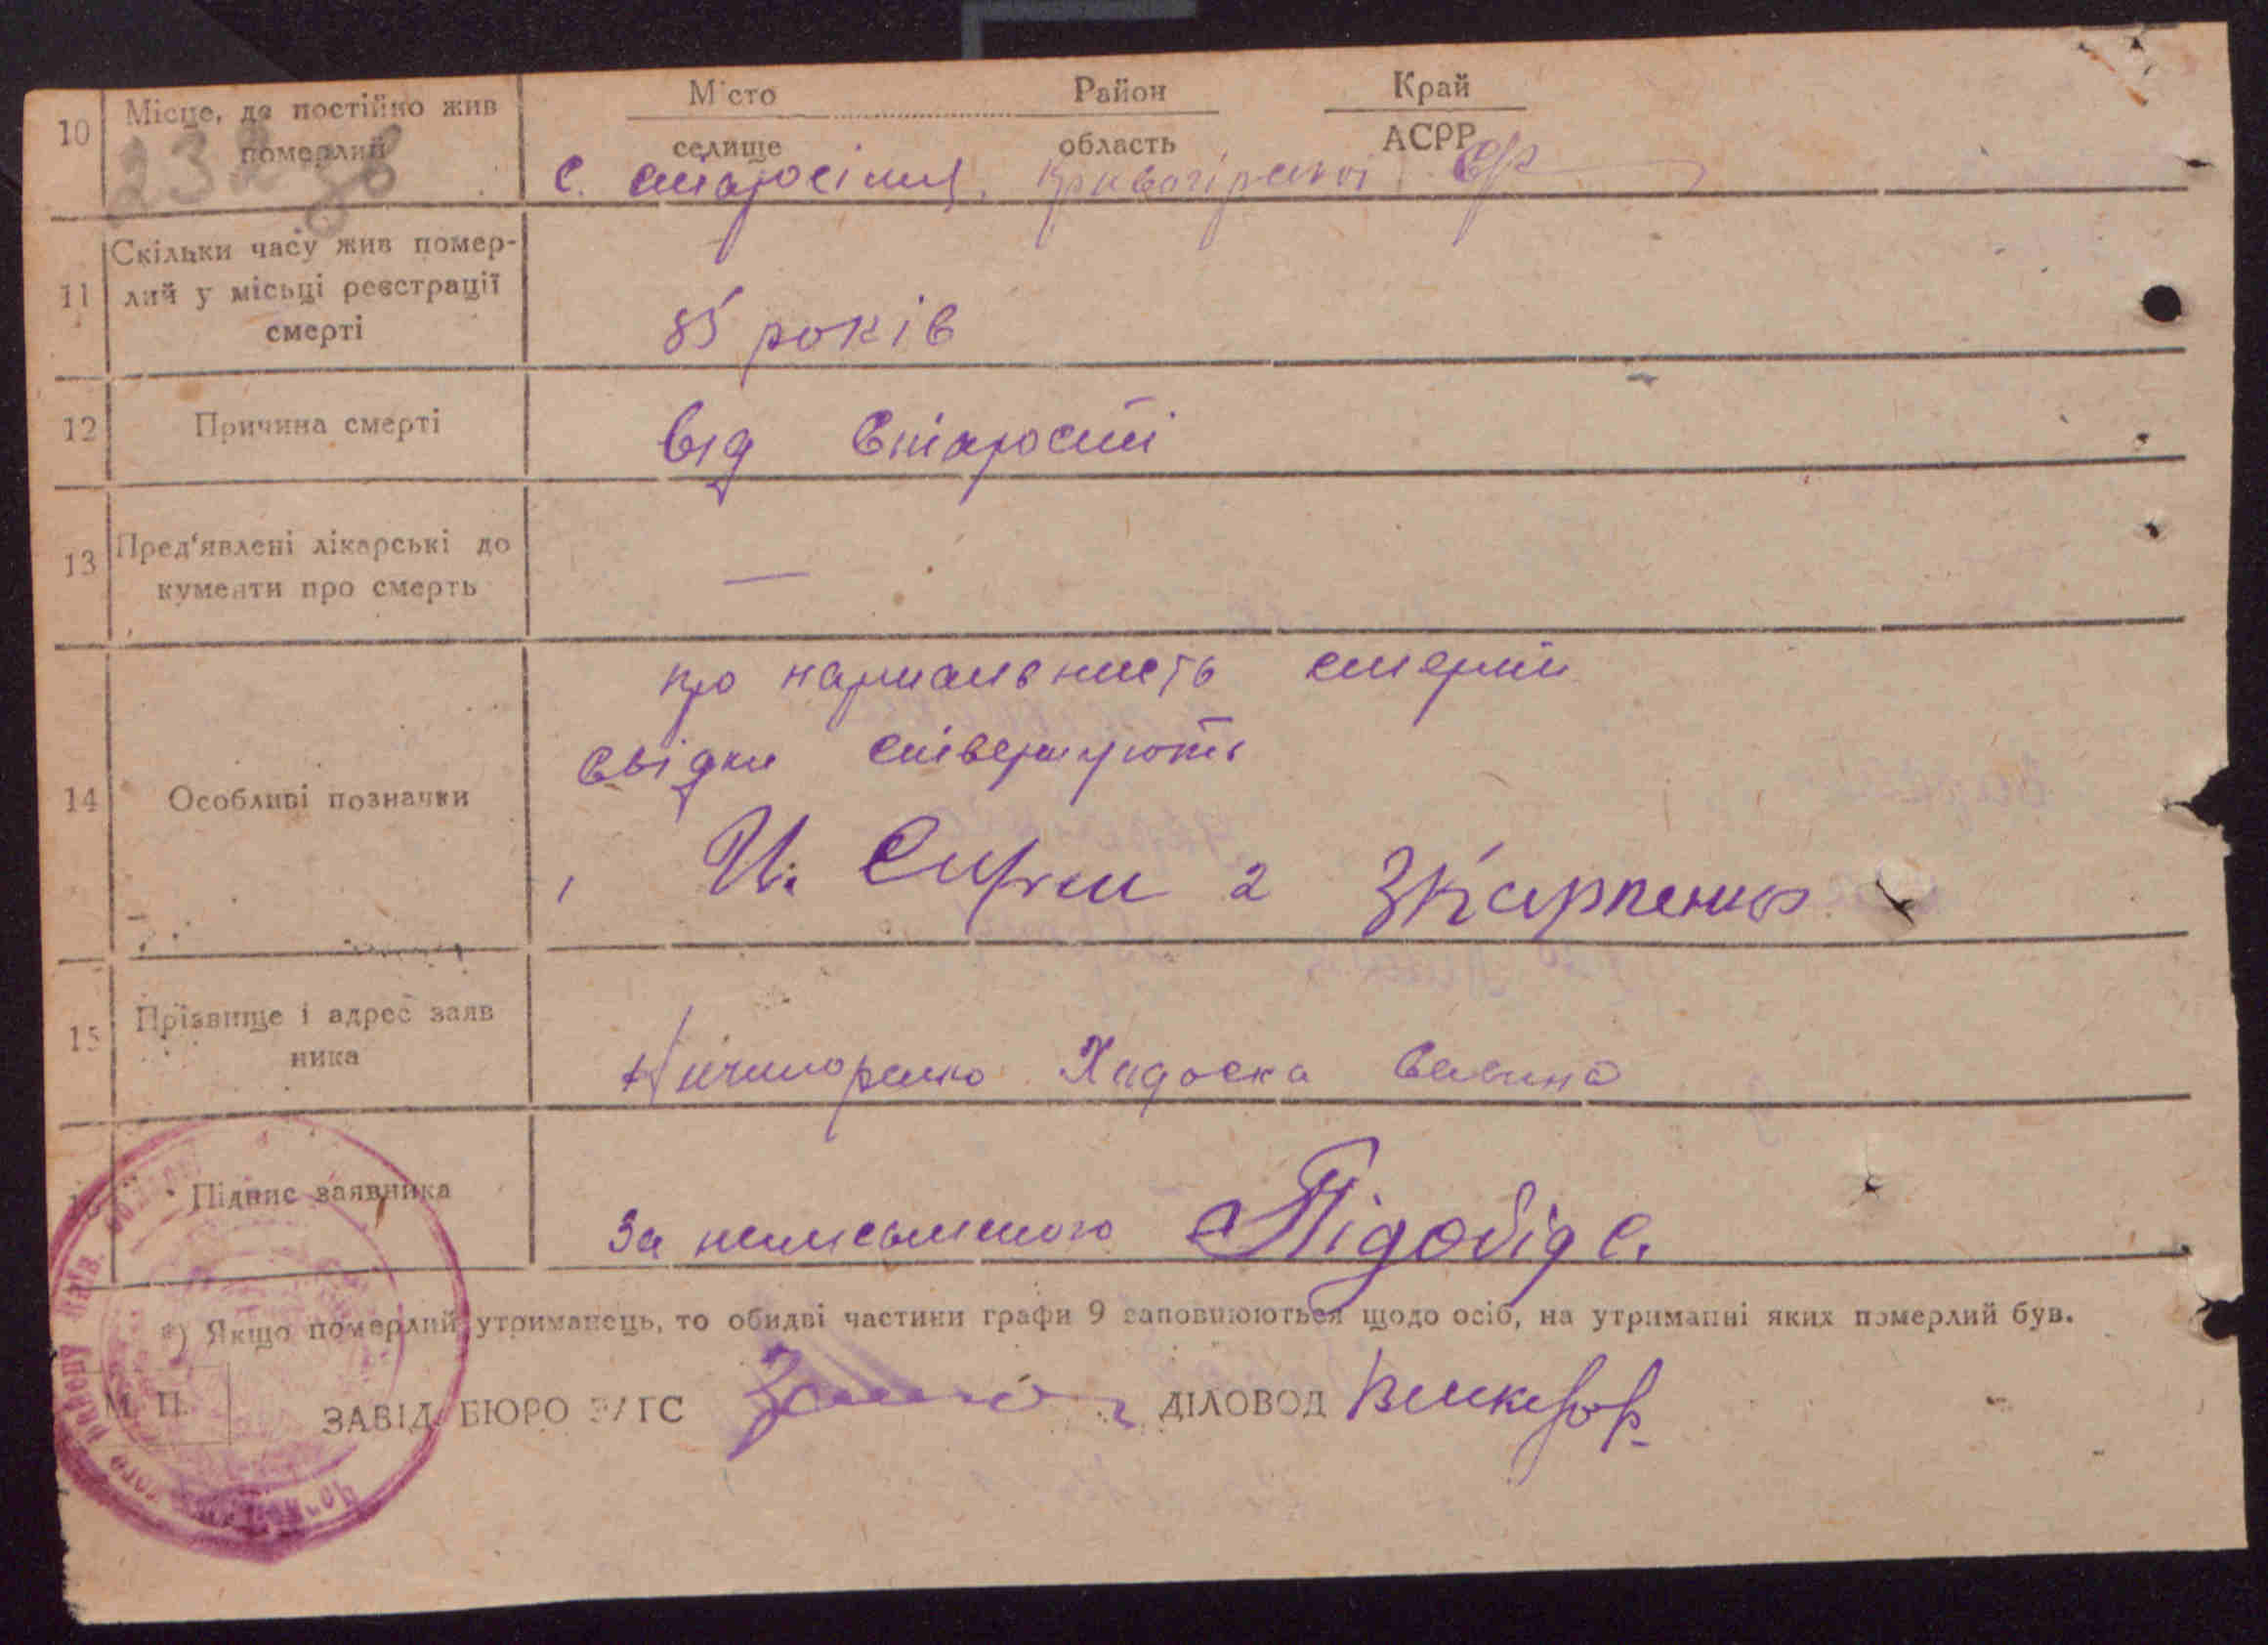 10 Місце, де постійно жив М'сто Район Край
померлий селище область АСРР
23288
с. старосілля
11 Скільки часу жив помер-
лий у місьці реєстрації
смерті
85 років
12 Причина смерті від старості
13 Пред'явлені лікарські до
кументи про смерть —
14 Особливі позначки
про нармальність смерти
свідки ствержують
1 И. 2 ЗКарпенко
15 Прізвище і адрес заяв
ника
Ничипоренко
Підпис заявника За неписьменого Підобід С.
*) Якщо померлий утриманець, то обидві частини графи 9 заповнюються щодо осіб, на утриманні яких померлий був.
М. П. ЗАВІД. БЮРО ЗАГС ДІЛОВОД